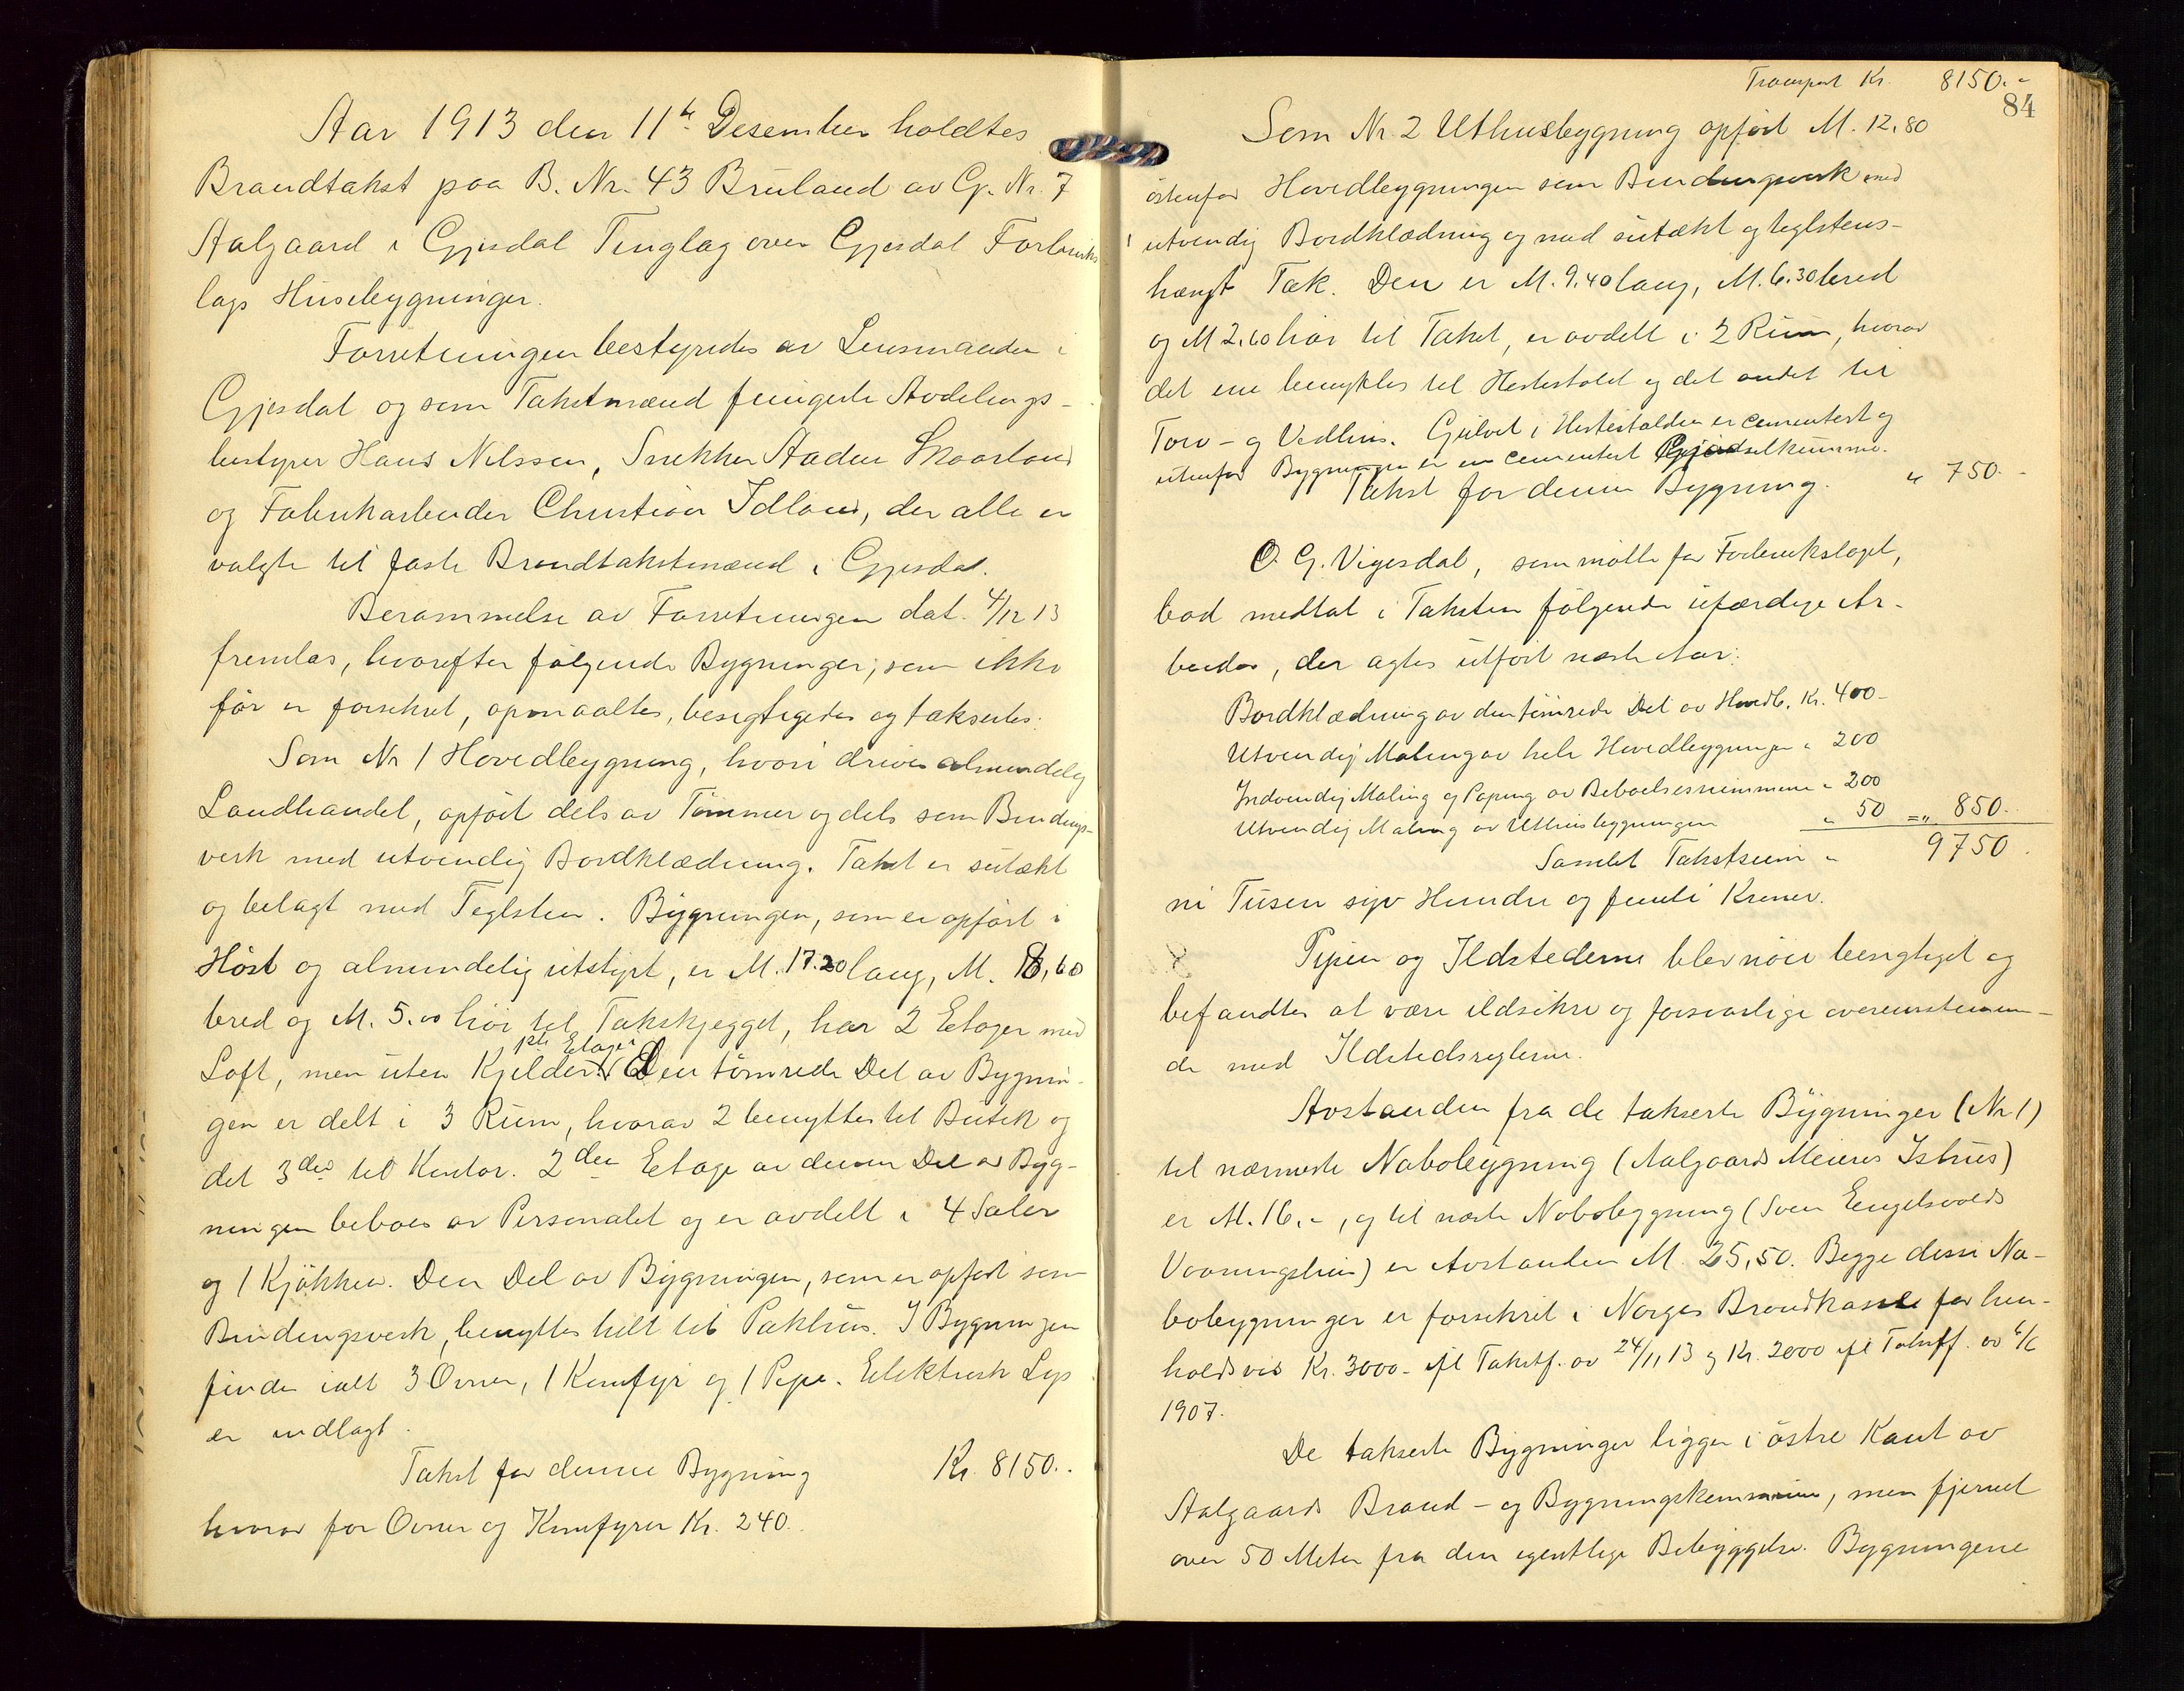 Aar 1913 den 11te Desember holdtes
Brandtakst paa B. Nr. 43 Bruland av G. Nr. 7
Aalgaard i Gjesdal Tinglag over Gjesdal Forbruks
lags Husebygninger.
Forretningen bestyredes av Lensmanden i
Gjesdal og som Takstmænd fungerte Avdelings-
bestyrer Hans Nilssen, Snekker Aaden Skaarland
og Fabrikarbeider Christian Idland, der alle er
valgte til faste Brandtakstmænd i Gjesdal.
Berammelse av Forretningen dat. 4/12 13
fremlas, hvorefter følgende Bygninger, som ikke
før er forsikret, opmaaltes, besigtigedes og takseres:
Som Nr 1 Hovedbygning, hvori drives almindelig
Landhandel, opført dels av Tømmer og dels som Bindings-
verk med utvendig Bordklædning. Taket er sutækt
og belagt med Teglsten. Bygningen, som er opført i
Høst og almindelig utstyrt, er M. 17.20 lang, M. 8,60
bred og M. 5.00 høi til Takskjegget, har 2 Etager med
Loft, men uten Kjelder.
1ste Etage i
Den tømrede Del av Bygnin-
gen er delt i 3 Rum, hvorav 2 benyttes til Butik og
det 3die til Kontor. 2den Etage av denne Del av Byg-
ningen beboes av Personalet og er avdelt i 4 Saler
og 1 Kjøkken. Den Del av Bygningen, som er opført som
Bindingsverk, benyttes helt til Pakhus. I Bygningen
findes ialt 3 Ovner, 1 Komfyr og 1 Pipe. Elektrisk Lys
er indlagt.
Takst for denne Bygning Kr. 8150..
hvorav for Ovner og Komfyrer Kr. 240.
Transport Kr. 8150.-
84
Som Nr. 2 Uthusbygning opført M. 12,80
østenfor Hovedbygningen som Bindingsverk med
utvendig Bordklædning og med sutækt og teglstens-
hængt Tak. Den er M. 9.40 lang, M. 6.30 bred
og M 2.60 høi til Taket, er avdelt i 2 Rum, hvorav
det ene benyttes til Hestestald og det andet til
Torv- og Vedhus. Gulvet i Hestestalden er cementert og
utenfor Bygningen er en cementert Gjødselkumme.
Takst for denne Bygning. " 750.-
O. G. Vigesdal, som møtte for Forbrukslaget,
bad medtat i Taksten følgende uferdige Ar-
beider, der agtes utført næste Aar:
Bordklædning av den tømrede Del av Hovedb. Kr. 400-
Utvendig Maling av hele Hovedbygningen " 200
Indvendig Maling og Paping av Beboelsesrummene " 200
Utvendig Maling av Uthusbygningen " 50 = " 850.-
Samlet Takstsum " 9750.
ni Tusen syv Hundre og femti Kroner.
Pipen og Ildstederne blev nøie besigtiget og
befandtes at være ildsikre og forsvarlige overensstemmen-
de med Ildstedsreglerne.
Avstanden fra de takserte Bygninger (Nr 1)
til nærmeste Nabobygning (Aalgaards Meieris Ishus)
er M. 16.-, og til næste Nabobygning (Sven Engelsvolds
Vaaningshus) er Avstanden M. 35,50. Begge disse Na-
bobygninger er forsikret i Norges Brandkasse for hen-
holdsvis Kr. 3000- ifl Takstf. av 24/11 13 og Kr. 2000 ifl Takstf. av 6/6
1907.
De takserte Bygninger ligger i østre Kant av
Aalgaards Brand- og Bygningskommune, men fjernet
over 50 Meter fra den egentlige Bebyggelse. Bygningene